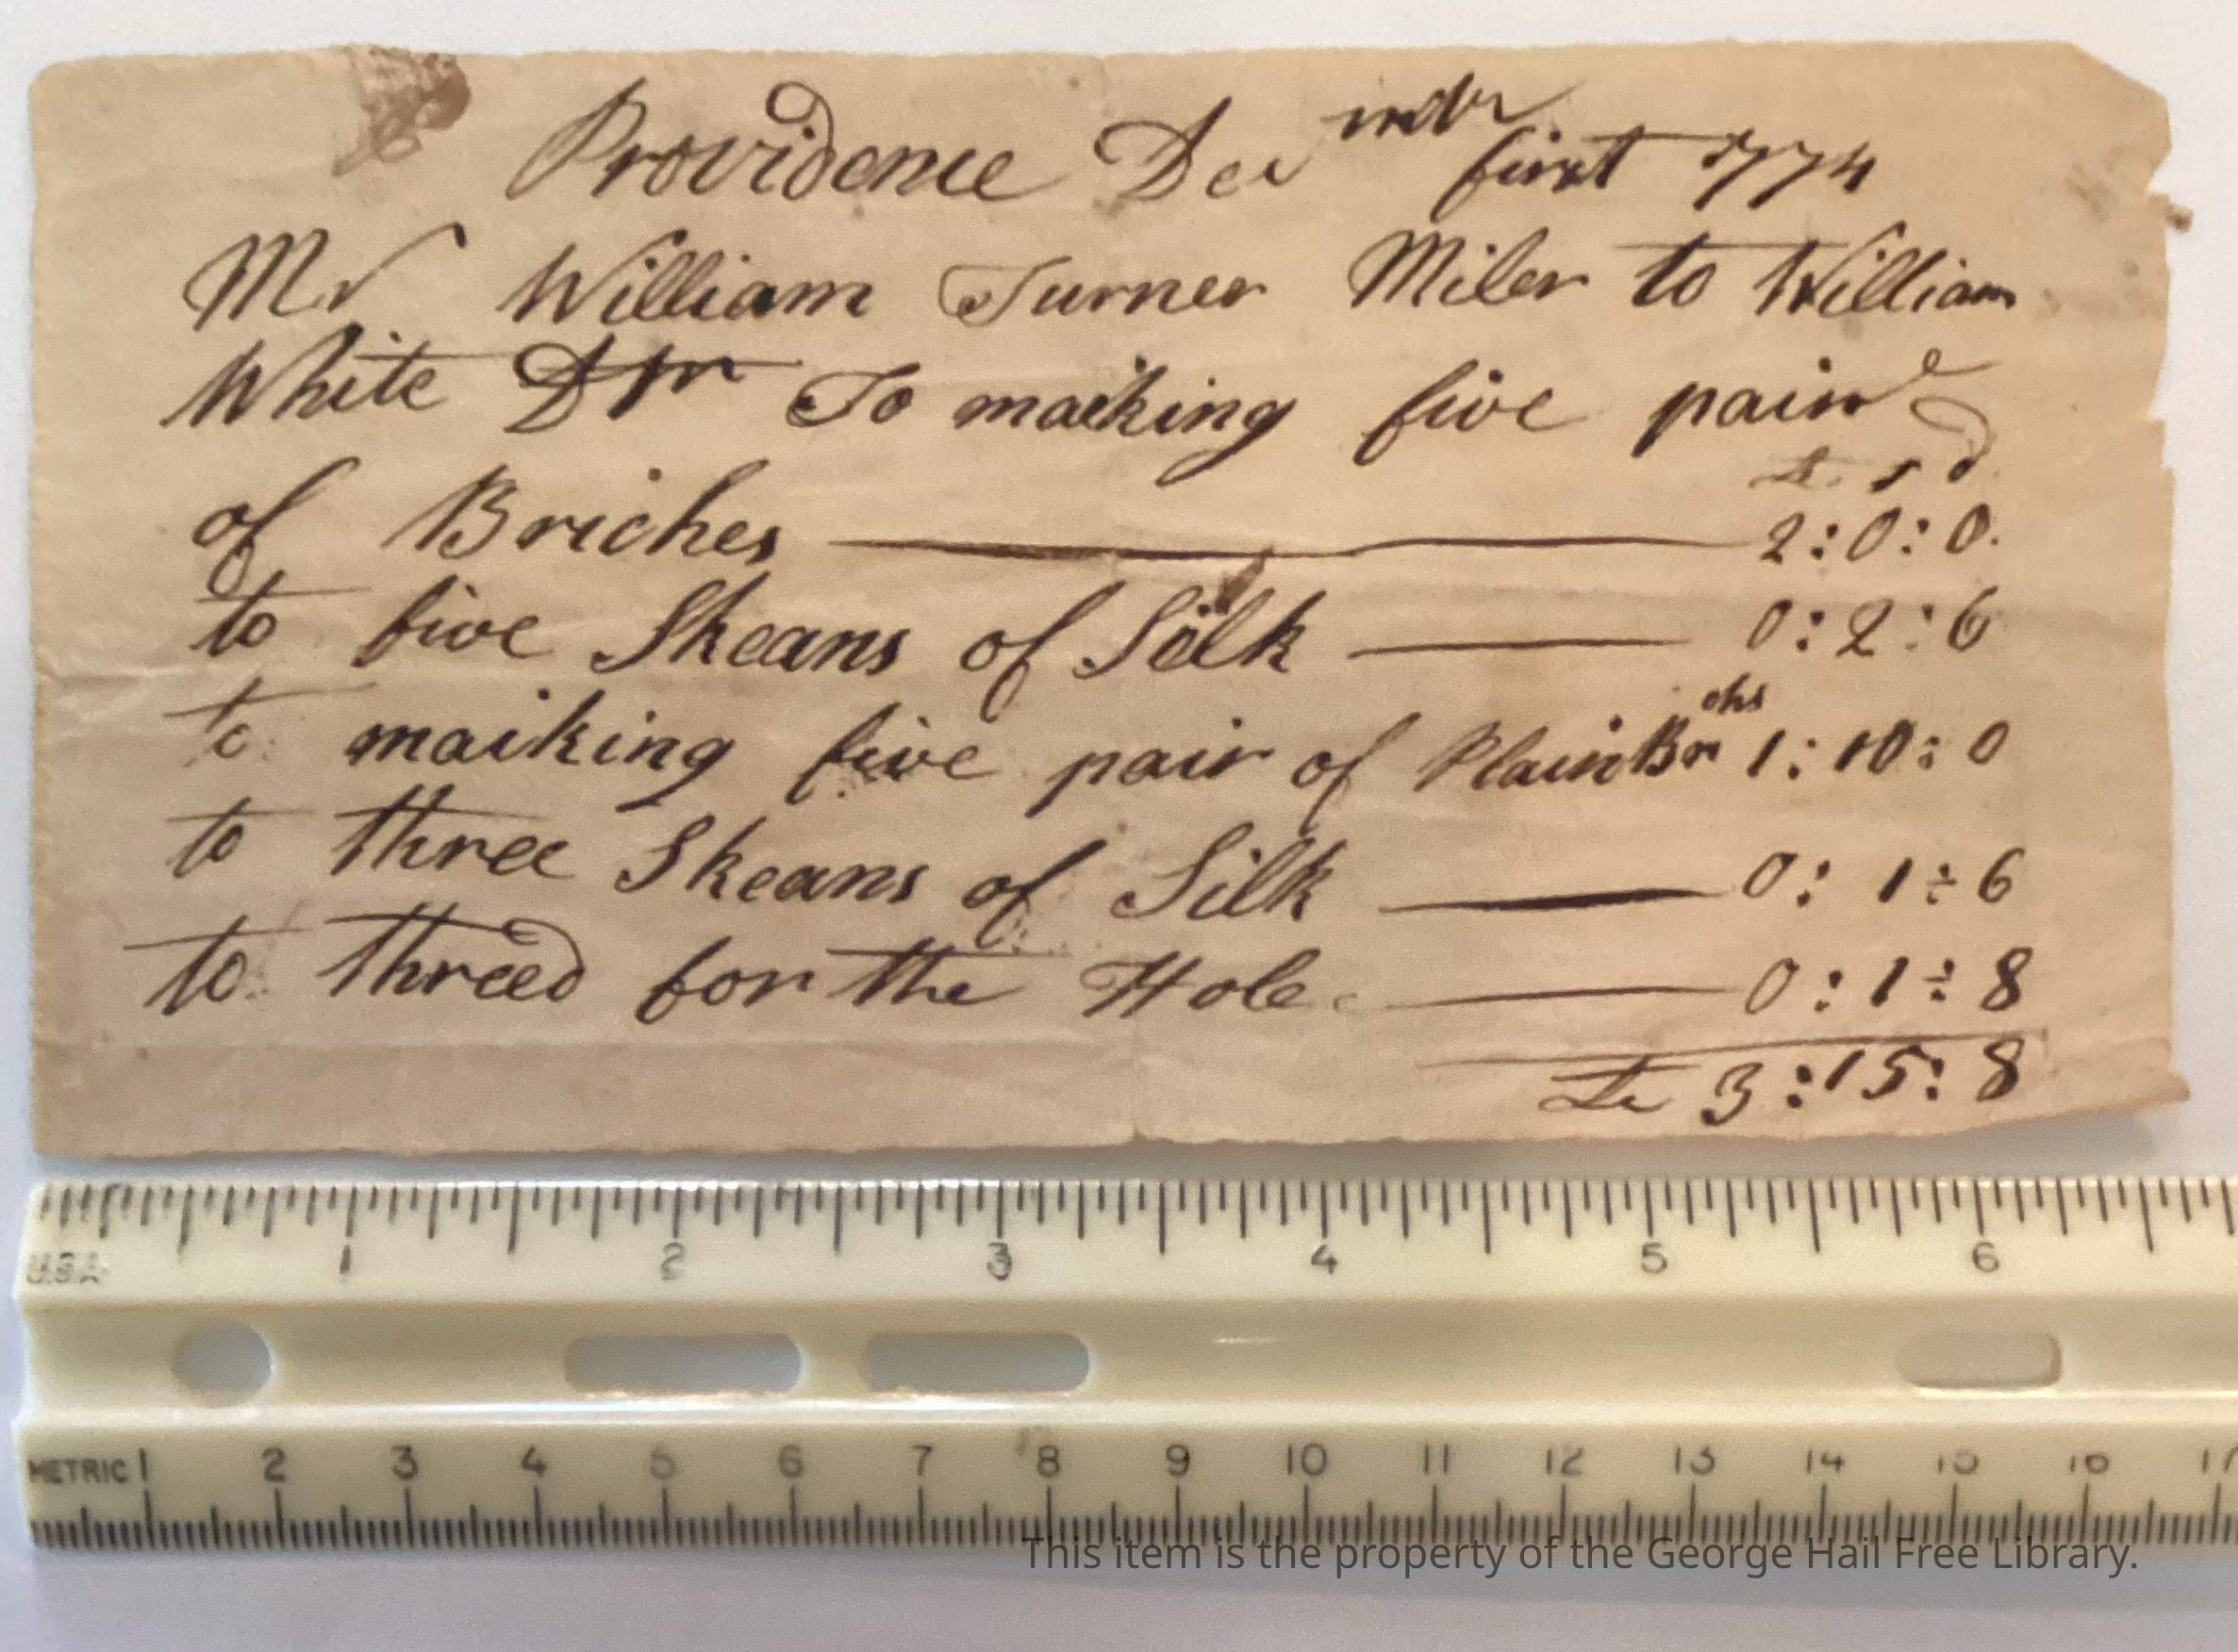 Providence Decmbr first 1774
Mr William Turner Miler to William
White Dr To maiking five paire
£ s d
of Briches 2:0:0.
to five Skeans of Silk 0:2:6
to maiking five pair of Plain Brchs 1:10:0
to three Skeans of Silk 0:1:6
to threed for the Hole 0:1:8
£ 3:15:8
U.S.A.
1 2 3 4 5 6
METRIC 1 2 3 4 5 6 7 8 9 10 11 12 13 14 15 16 17
This item is the property of the George Hail Free Library.